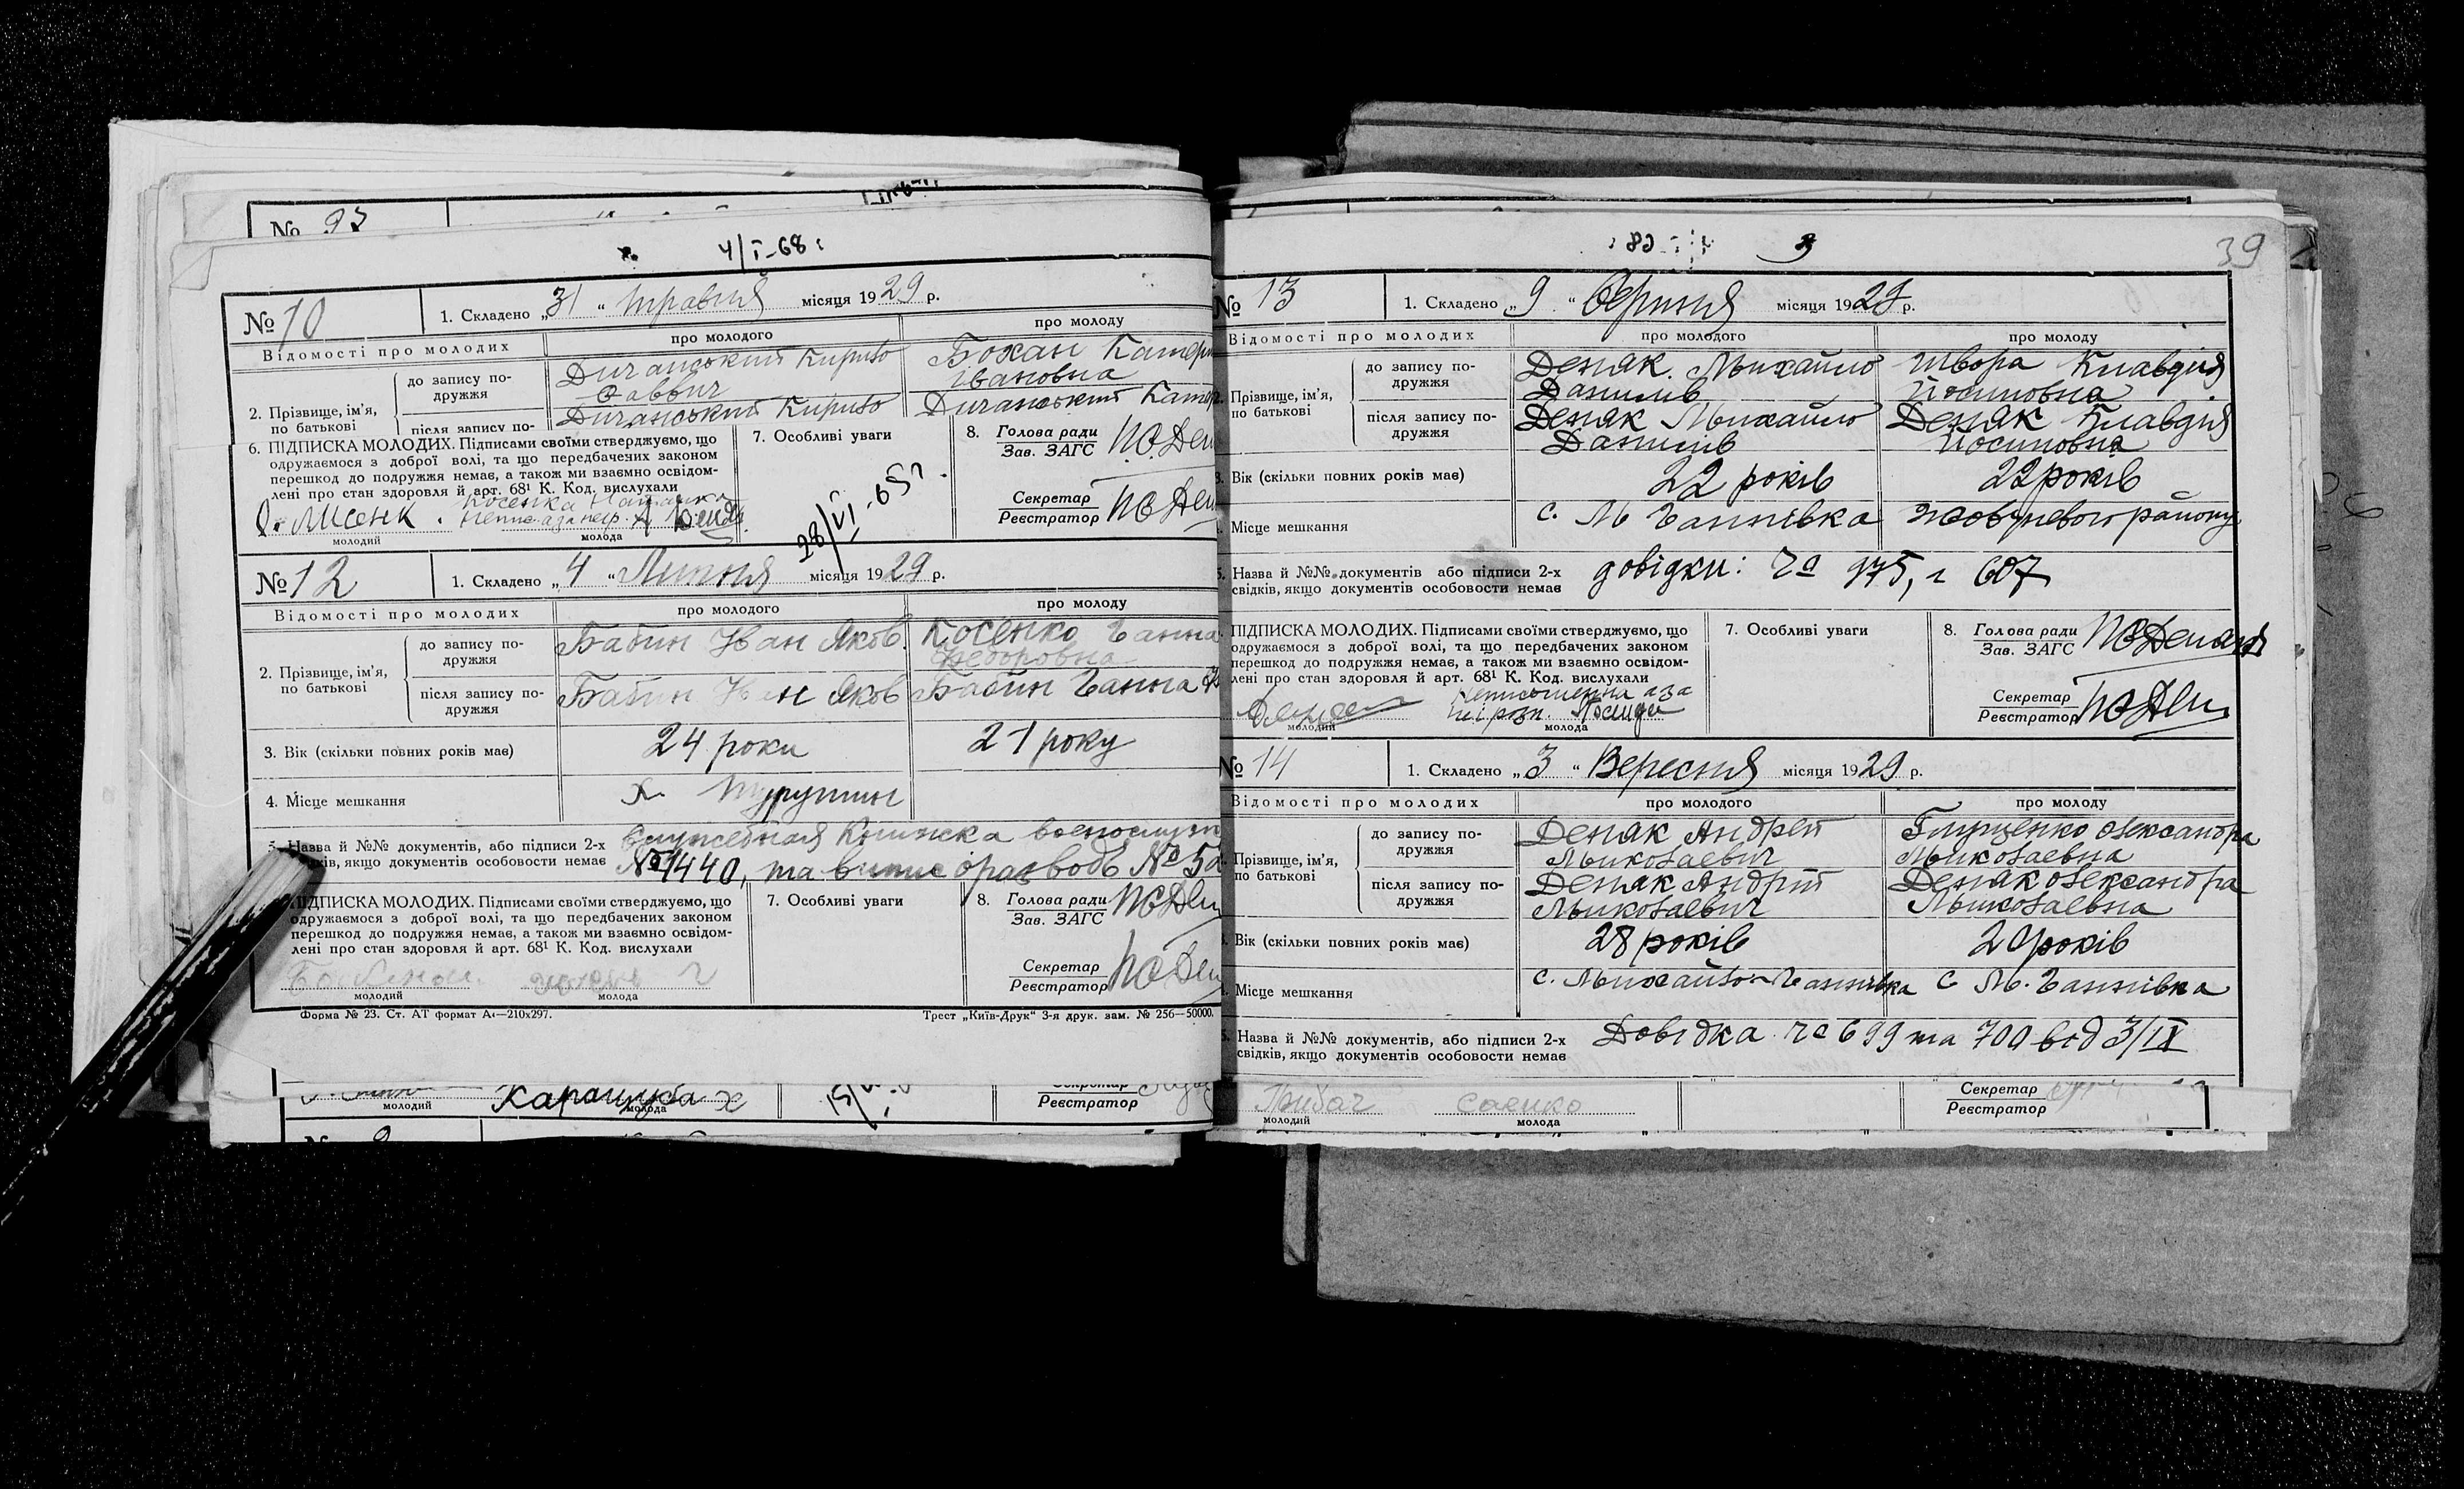 № 93
4/I-68
№ 10
1. Складено „31“ травня місяця 1929 р.
Відомості про молодих
про молодого
про молоду
2. Прізвище, ім'я, по батькові
до запису подружжя
Дичанський Кирило
Саввич
Бохан Катер
Івановна
після запису по-
Дичанський Кирило
Дичанський Катер
6. ПІДПИСКА МОЛОДИХ. Підписами своїми стверджуємо, що
одружаємося з доброї волі, та що передбачених законом
перешкод до подружжя немає, а також ми взаємно освідом-
лені про стан здоровля й арт. 68¹ К. Код. вислухали
молодий
молода
7. Особливі уваги
28/VI-65 г.
8. Голова ради
Зав. ЗАГС
Секретар
Реєстратор
№ 12
1. Складено „4“ Липня місяця 1929 р.
Відомості про молодих
про молодого
про молоду
2. Прізвище, ім'я,
по батькові
до запису по-
дружжя
Бабин Іван Яков.
Косенко Ганна
Федоровна
після запису по-
дружжя
Бабин Іван Яков
Бабин Ганна
3. Вік (скільки повних років має)
24 роки
21 року
4. Місце мешкання
х.
5. Назва й №№ документів, або підписи 2-х
свідків, якщо документів особовости немає
служебная книжка
№ 1440, та
ПІДПИСКА МОЛОДИХ. Підписами своїми стверджуємо, що
одружаємося з доброї волі, та що передбачених законом
перешкод до подружжя немає, а також ми взаємно освідом-
лені про стан здоровля й арт. 68¹ К. Код. вислухали
молодий
молода
7. Особливі уваги
8. Голова ради
Зав. ЗАГС
Секретар
Реєстратор
Форма № 23. Ст. АТ формат А4—210х297.
Трест „Київ-Друк“ 3-я друк. зам. № 256—50000.
молодий
Каращуба х
молода
Реєстратор
39
№ 13
1. Складено „9“ Серпня місяця 1929 р.
Відомості про молодих
про молодого
про молоду
Прізвище, ім'я,
по батькові
до запису по-
дружжя
Деняк Михайло
Данилів
Швора Клавдія
Йосиповна
після запису по-
дружжя
Деняк Михайло
Данилів
Деняк Клавдія
Йосиповна
Вік (скільки повних років має)
22 років
22 років
Місце мешкання
с. М Ганнівка
Жовтневого району
Назва й №№ документів або підписи 2-х
свідків, якщо документів особовости немає
довідки: 607
ПІДПИСКА МОЛОДИХ. Підписами своїми стверджуємо, що
одружаємося з доброї волі, та що передбачених законом
перешкод до подружжя немає, а також ми взаємно освідом-
лені про стан здоровля й арт. 68¹ К. Код. вислухали
молодий
молода
7. Особливі уваги
8. Голова ради
Зав. ЗАГС
Секретар
Реєстратор
№ 14
1. Складено „3“ Вересня місяця 1929 р.
Відомості про молодих
про молодого
про молоду
Прізвище, ім'я,
по батькові
до запису по-
дружжя
Деняк Андрей
Миколаевич
Глущенко Олександра
Миколаевна
після запису по-
дружжя
Деняк Андрій
Миколаевич
Деняк Олександра
Миколаевна
Вік (скільки повних років має)
28 років
років
Місце мешкання
с. Михайло-Ганнівка
С М. Ганнівка
Назва й №№ документів, або підписи 2-х
свідків, якщо документів особовости немає
Довідка 699 та 700 від 3/IX
саенко
молодий
молода
Секретар
Реєстратор